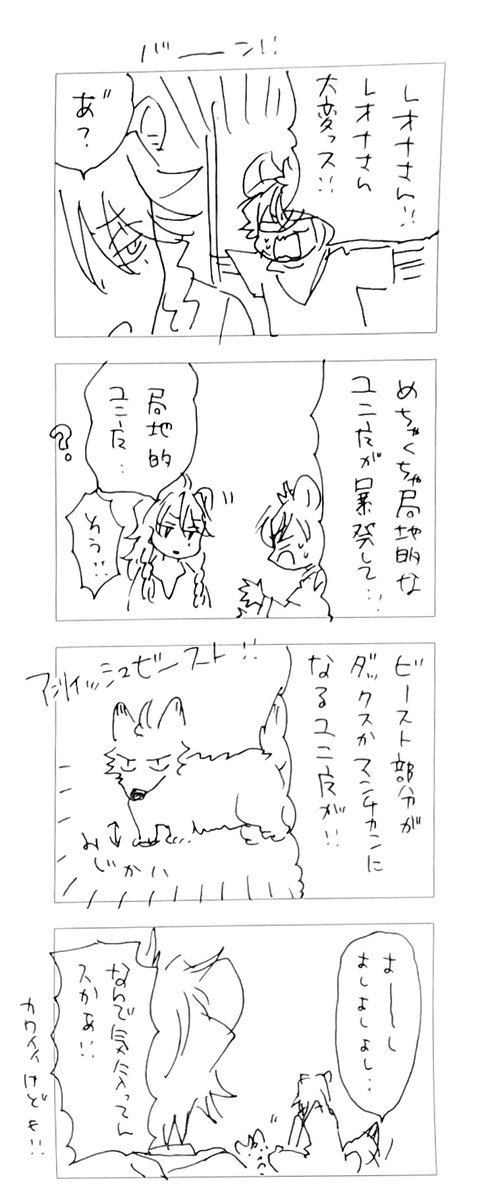 バーン!!
レオナさん!!
レオナさん
大変っス!!
あ゛?
めちゃくちゃ局地的な
ユニ魔が暴発して…!
局地的
ユニ魔…
?
わう!!
ビースト部分が
ダックスかマンチカンに
なるユニ魔が!!
アジィッシュビースト!!
みじかい
よーーし
よしよしよし…
なんで気に入ってん
スかぁ!!
カワイイけども!!